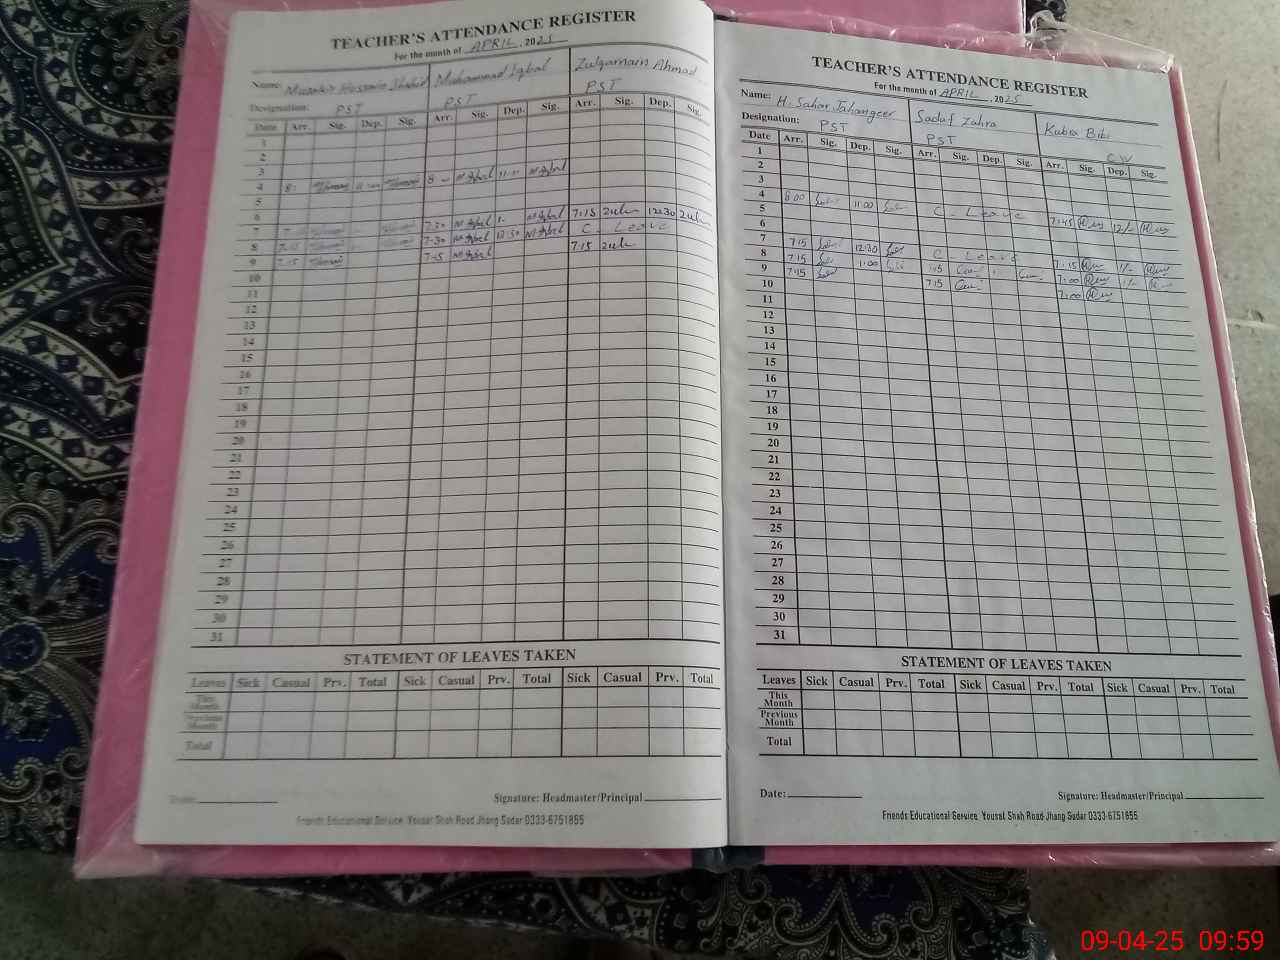 TEACHER'S ATTENDANCE REGISTER
For the month of APRIL, 2025
Name: Hussain Shahid Muhammad Iqbal Zulqarnain Ahmad
Designation: PST PST PST
Date Arr. Sig. Dep. Sig. Arr. Sig. Dep. Sig. Arr. Sig. Dep. Sig.
1
2
3
4 8: 8 M Iqbal 11: M Iqbal
5
6
7 7 7:30 M Iqbal 1. M Iqbal 7:15 Zulr 12:30 Zulr
8 7:15 7:30 M Iqbal 12:30 M Iqbal C. Leave
9 7:15 7:15 M Iqbal 7:15 Zulr
10
11
12
13
14
15
16
17
18
19
20
21
22
23
24
25
26
27
28
29
30
31
STATEMENT OF LEAVES TAKEN
Leaves Sick Casual Prv. Total Sick Casual Prv. Total Sick Casual Prv. Total
This Month
Previous Month
Total
Date:
Signature: Headmaster/Principal
Friends Educational Service, Yousaf Shah Road Jhang Sadar 0333-6751855
TEACHER'S ATTENDANCE REGISTER
For the month of APRIL, 2025
Name: H. Sahar Jahangeer Sadaf Zahra Kubra Bibi
Designation: PST PST CW
Date Arr. Sig. Dep. Sig. Arr. Sig. Dep. Sig. Arr. Sig. Dep. Sig.
1
2
3
4 8:00 11:00 C. Leave 7:45 12/-
5
6
7 7:15 12:30 C. Leave 7:15 1/-
8 7:15 1:00 7:15 7:00 1/-
9 7:15 7:15 7:00
10
11
12
13
14
15
16
17
18
19
20
21
22
23
24
25
26
27
28
29
30
31
STATEMENT OF LEAVES TAKEN
Leaves Sick Casual Prv. Total Sick Casual Prv. Total Sick Casual Prv. Total
This Month
Previous Month
Total
Date:
Signature: Headmaster/Principal
Friends Educational Service, Yousaf Shah Road Jhang Sadar 0333-6751855
09-04-25 09:59